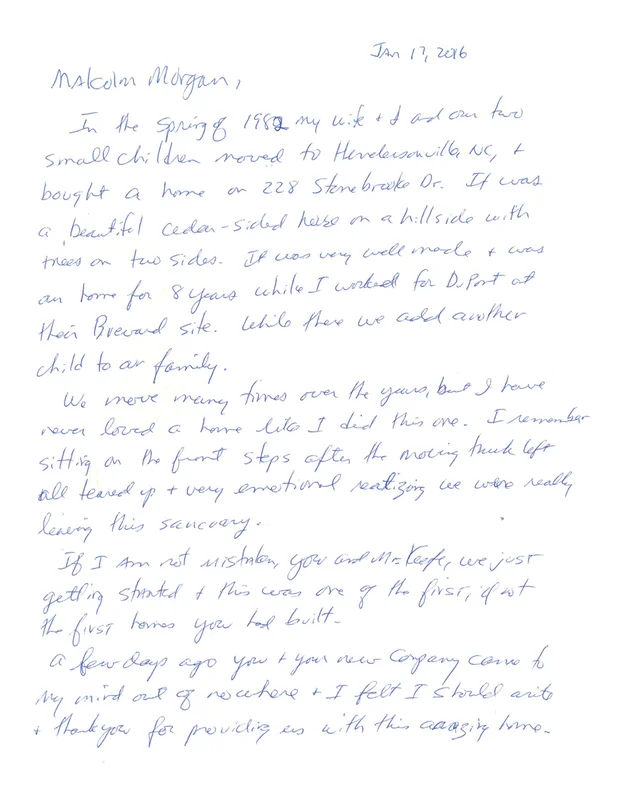 Jan 17, 2016
Malcolm Morgan,
In the spring of 1982 my wife + I and our two
small children moved to Hendersonville, NC, +
bought a home on 228 Stonebrooke Dr. It was
a beautiful cedar-sided house on a hillside with
trees on two sides. It was very well made + was
our home for 8 years while I worked for DuPont at
their Brevard site. While there we add another
child to our family.
We move many times over the years, but I have
never loved a home like I did this one. I remember
sitting on the front steps after the moving truck left
all teared up + very emotional realizing we were really
leaving this sancuary.
If I am not mistaken, you and Mr. Keefe, we just
getting started + this was one of the first, if not
the first homes you had built.
A few days ago you + your new Company came to
my mind out of nowhere + I felt I should write
+ thank you for providing us with this amazing home.